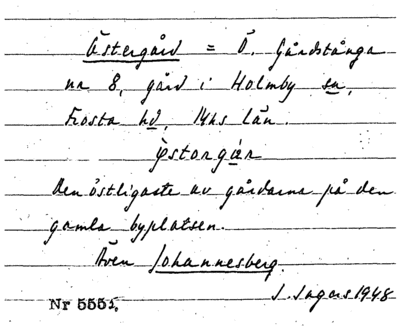 Östergård = Ö. Gårdstånga
nr 8, gård i Holmby sn,
Frosta hd, Mhs län.
östorgår
Den östligaste av gårdarna på den
gamla byplatsen.
Även Johannesberg.
S. Ingers 1948
Nr 5551.